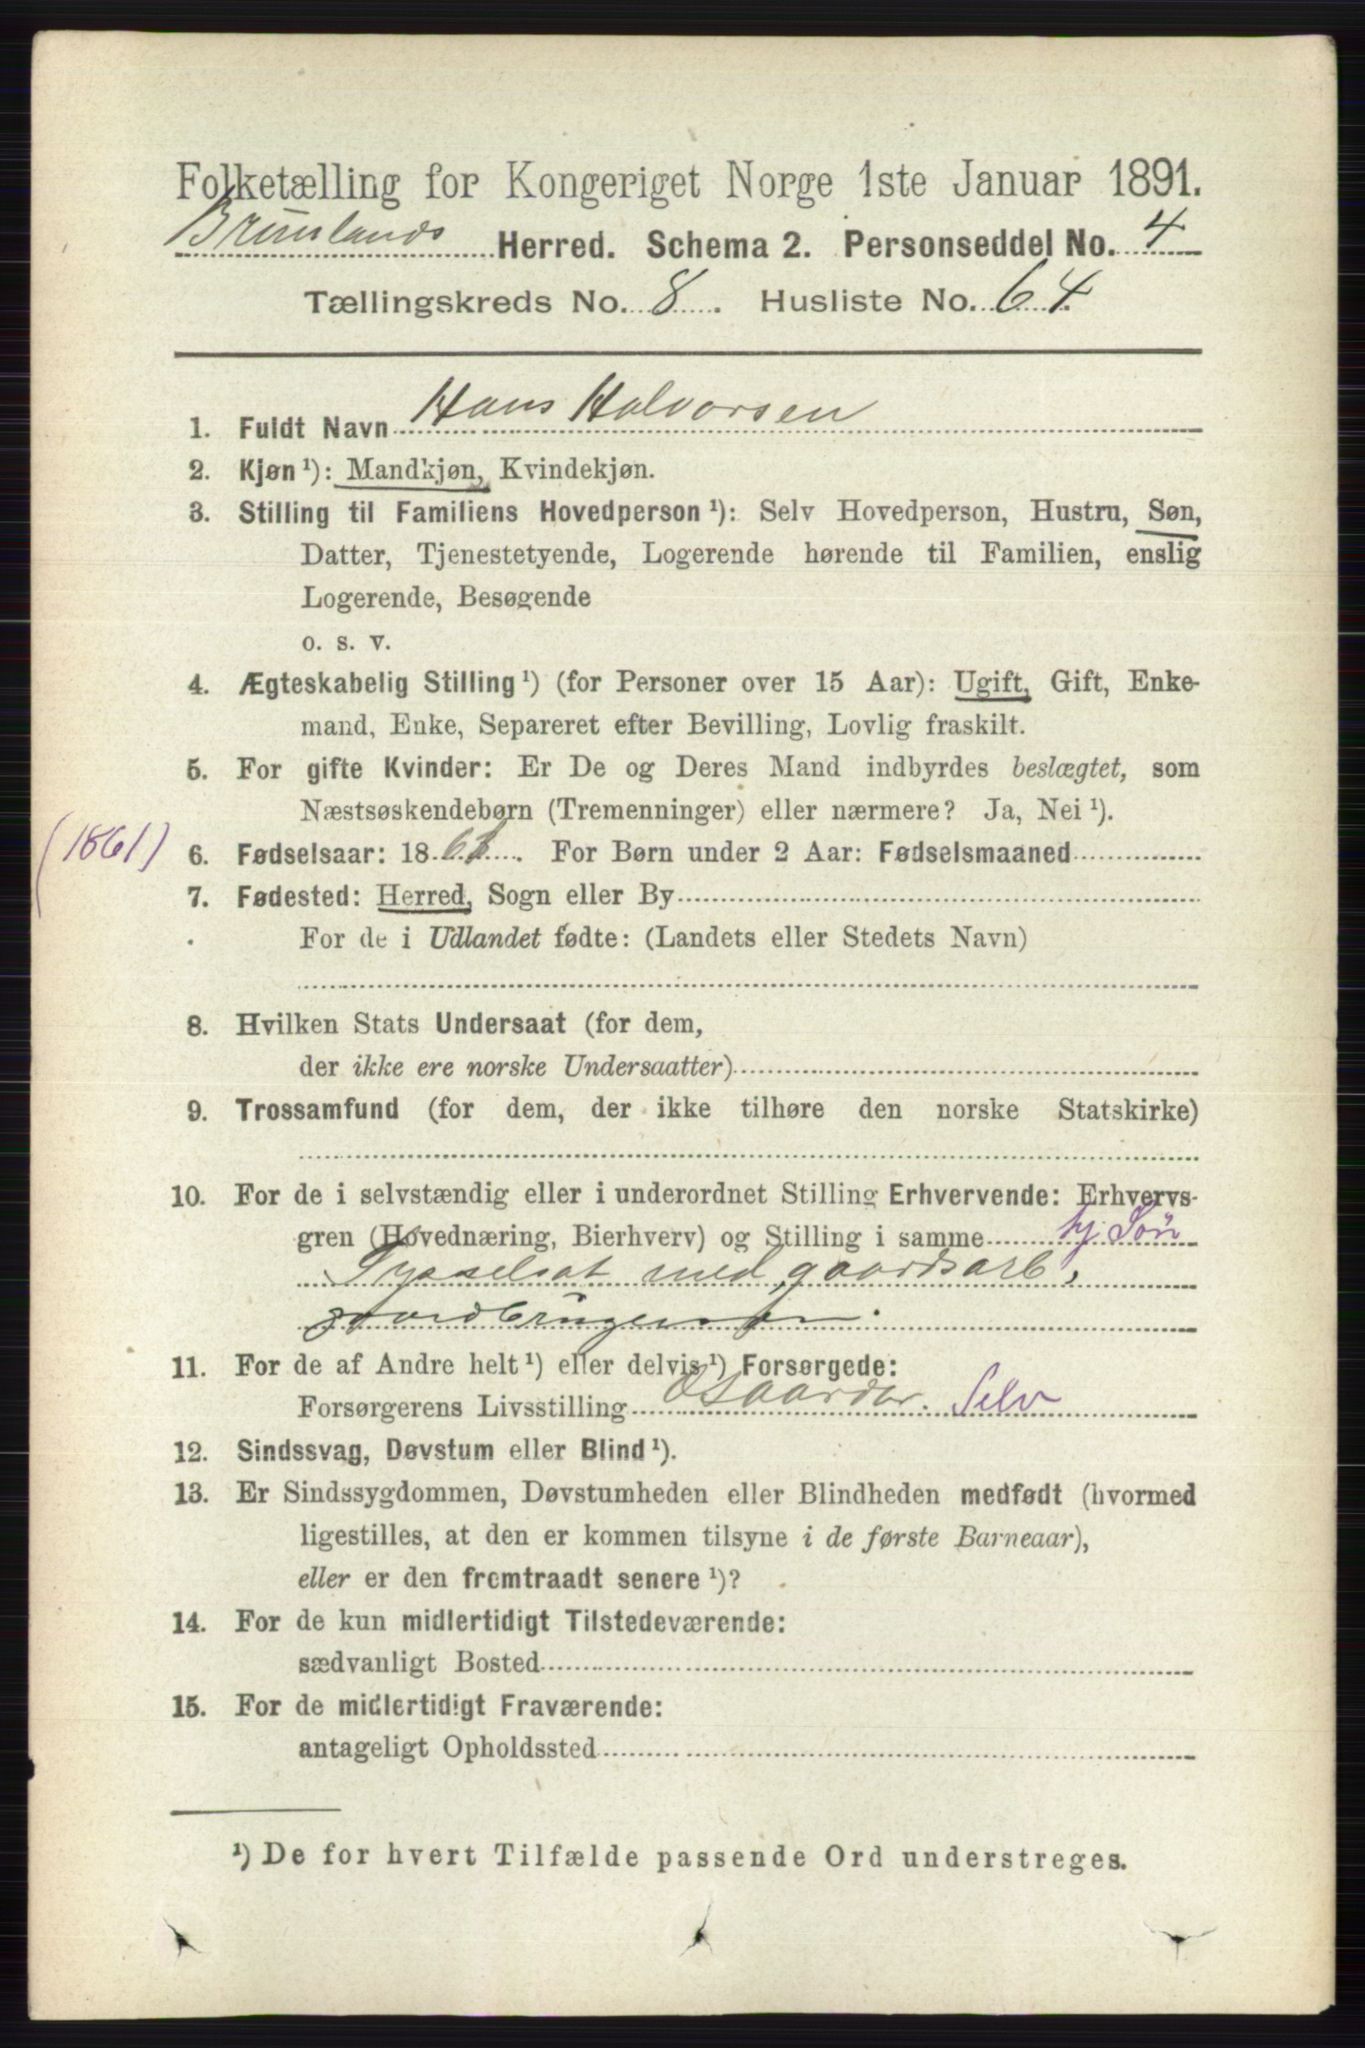 Folketælling for Kongeriget Norge 1ste Januar 1891.
Brunlands Herred. Schema 2. Personseddel No. 4
Tællingskreds No. 8. Husliste No. 64.
1. Fuldt Navn Hans Halvorsen
2. Kjøn ¹): Mandkjøn, Kvindekjøn.
3. Stilling til Familiens Hovedperson ¹): Selv Hovedperson, Hustru, Søn,
Datter, Tjenestetyende, Logerende hørende til Familien, enslig
Logerende, Besøgende
o. s. v.
4. Ægteskabelig Stilling ¹) (for Personer over 15 Aar): Ugift, Gift, Enke-
mand, Enke, Separeret efter Bevilling, Lovlig fraskilt.
5. For gifte Kvinder: Er De og Deres Mand indbyrdes beslægtet, som
Næstsøskendebørn (Tremenninger) eller nærmere? Ja, Nei ¹).
(1861) 6. Fødselsaar: 1861. For Børn under 2 Aar: Fødselsmaaned
7. Fødested: Herred, Sogn eller By
For de i Udlandet fødte: (Landets eller Stedets Navn)
8. Hvilken Stats Undersaat (for dem,
der ikke ere norske Undersaatter)
9. Trossamfund (for dem, der ikke tilhøre den norske Statskirke)
10. For de i selvstændig eller i underordnet Stilling Erhvervende: Erhvervs-
gren (Hovednæring, Bierhverv) og Stilling i samme hj. Søn
Sysselsat med gaardsarb,
gaardbruger
11. For de af Andre helt ¹) eller delvis ¹) Forsørgede:
Forsørgerens Livsstilling Selv
12. Sindssvag, Døvstum eller Blind ¹).
13. Er Sindssygdommen, Døvstumheden eller Blindheden medfødt (hvormed
ligestilles, at den er kommen tilsyne i de første Barneaar),
eller er den fremtraadt senere ¹)?
14. For de kun midlertidigt Tilstedeværende:
sædvanligt Bosted
15. For de midlertidigt Fraværende:
antageligt Opholdssted
¹) De for hvert Tilfælde passende Ord understreges.